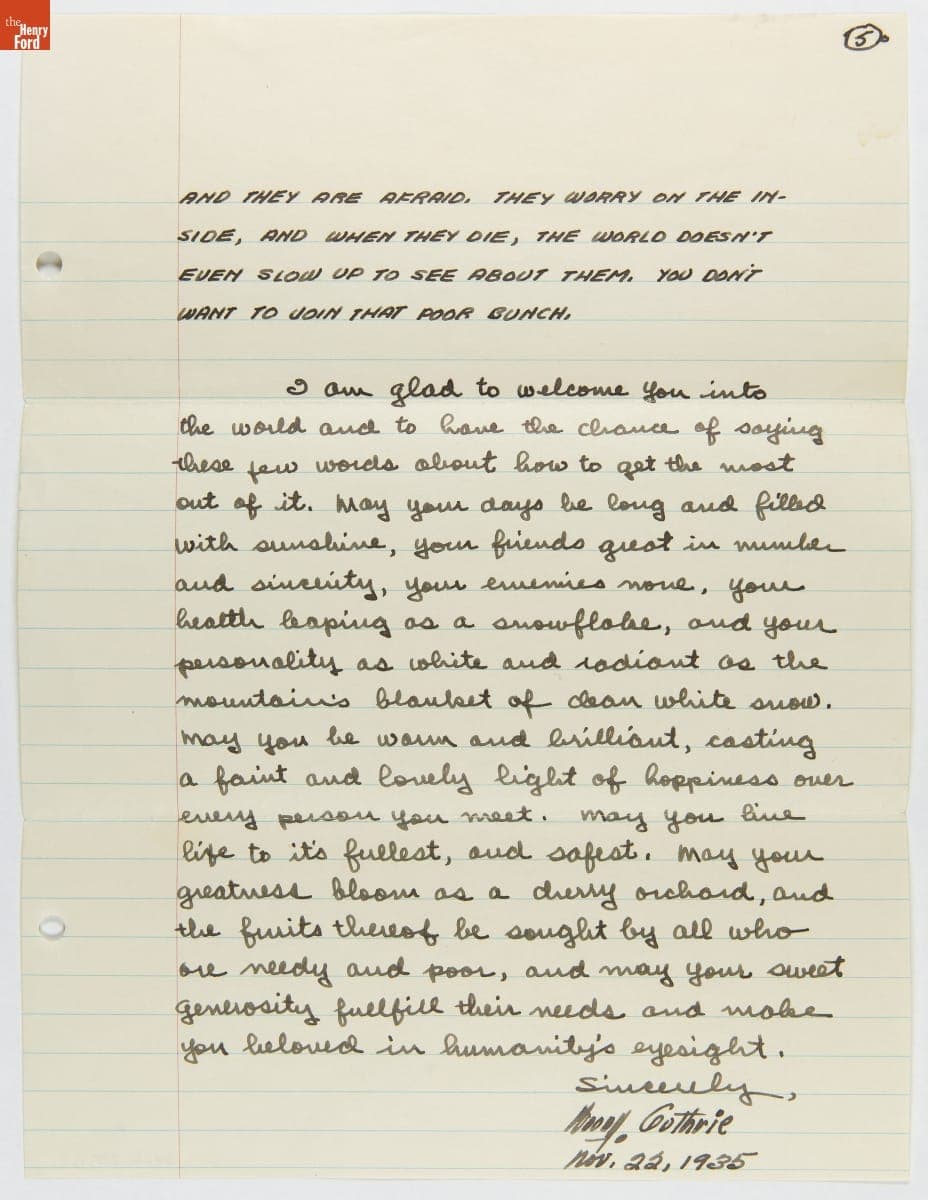 the
Henry
Ford
5
AND THEY ARE AFRAID. THEY WORRY ON THE IN-
SIDE, AND WHEN THEY DIE, THE WORLD DOESN'T
EVEN SLOW UP TO SEE ABOUT THEM. YOU DON'T
WANT TO JOIN THAT POOR BUNCH.
I am glad to welcome you into
the world and to have the chance of saying
these few words about how to get the most
out of it. May your days be long and filled
with sunshine, your friends great in number
and sincerity, your enemies none, your
health leaping as a snowflake, and your
personality as white and radiant as the
mountain's blanket of clean white snow.
May you be warm and brilliant, casting
a faint and lovely light of happiness over
every person you meet. May you live
life to it's fullest, and safest. May your
greatness bloom as a cherry orchard, and
the fruits thereof be sought by all who
are needy and poor, and may your sweet
generosity fullfill their needs and make
you beloved in humanity's eyesight.
Sincerely,
Woody Guthrie
Nov. 22, 1935